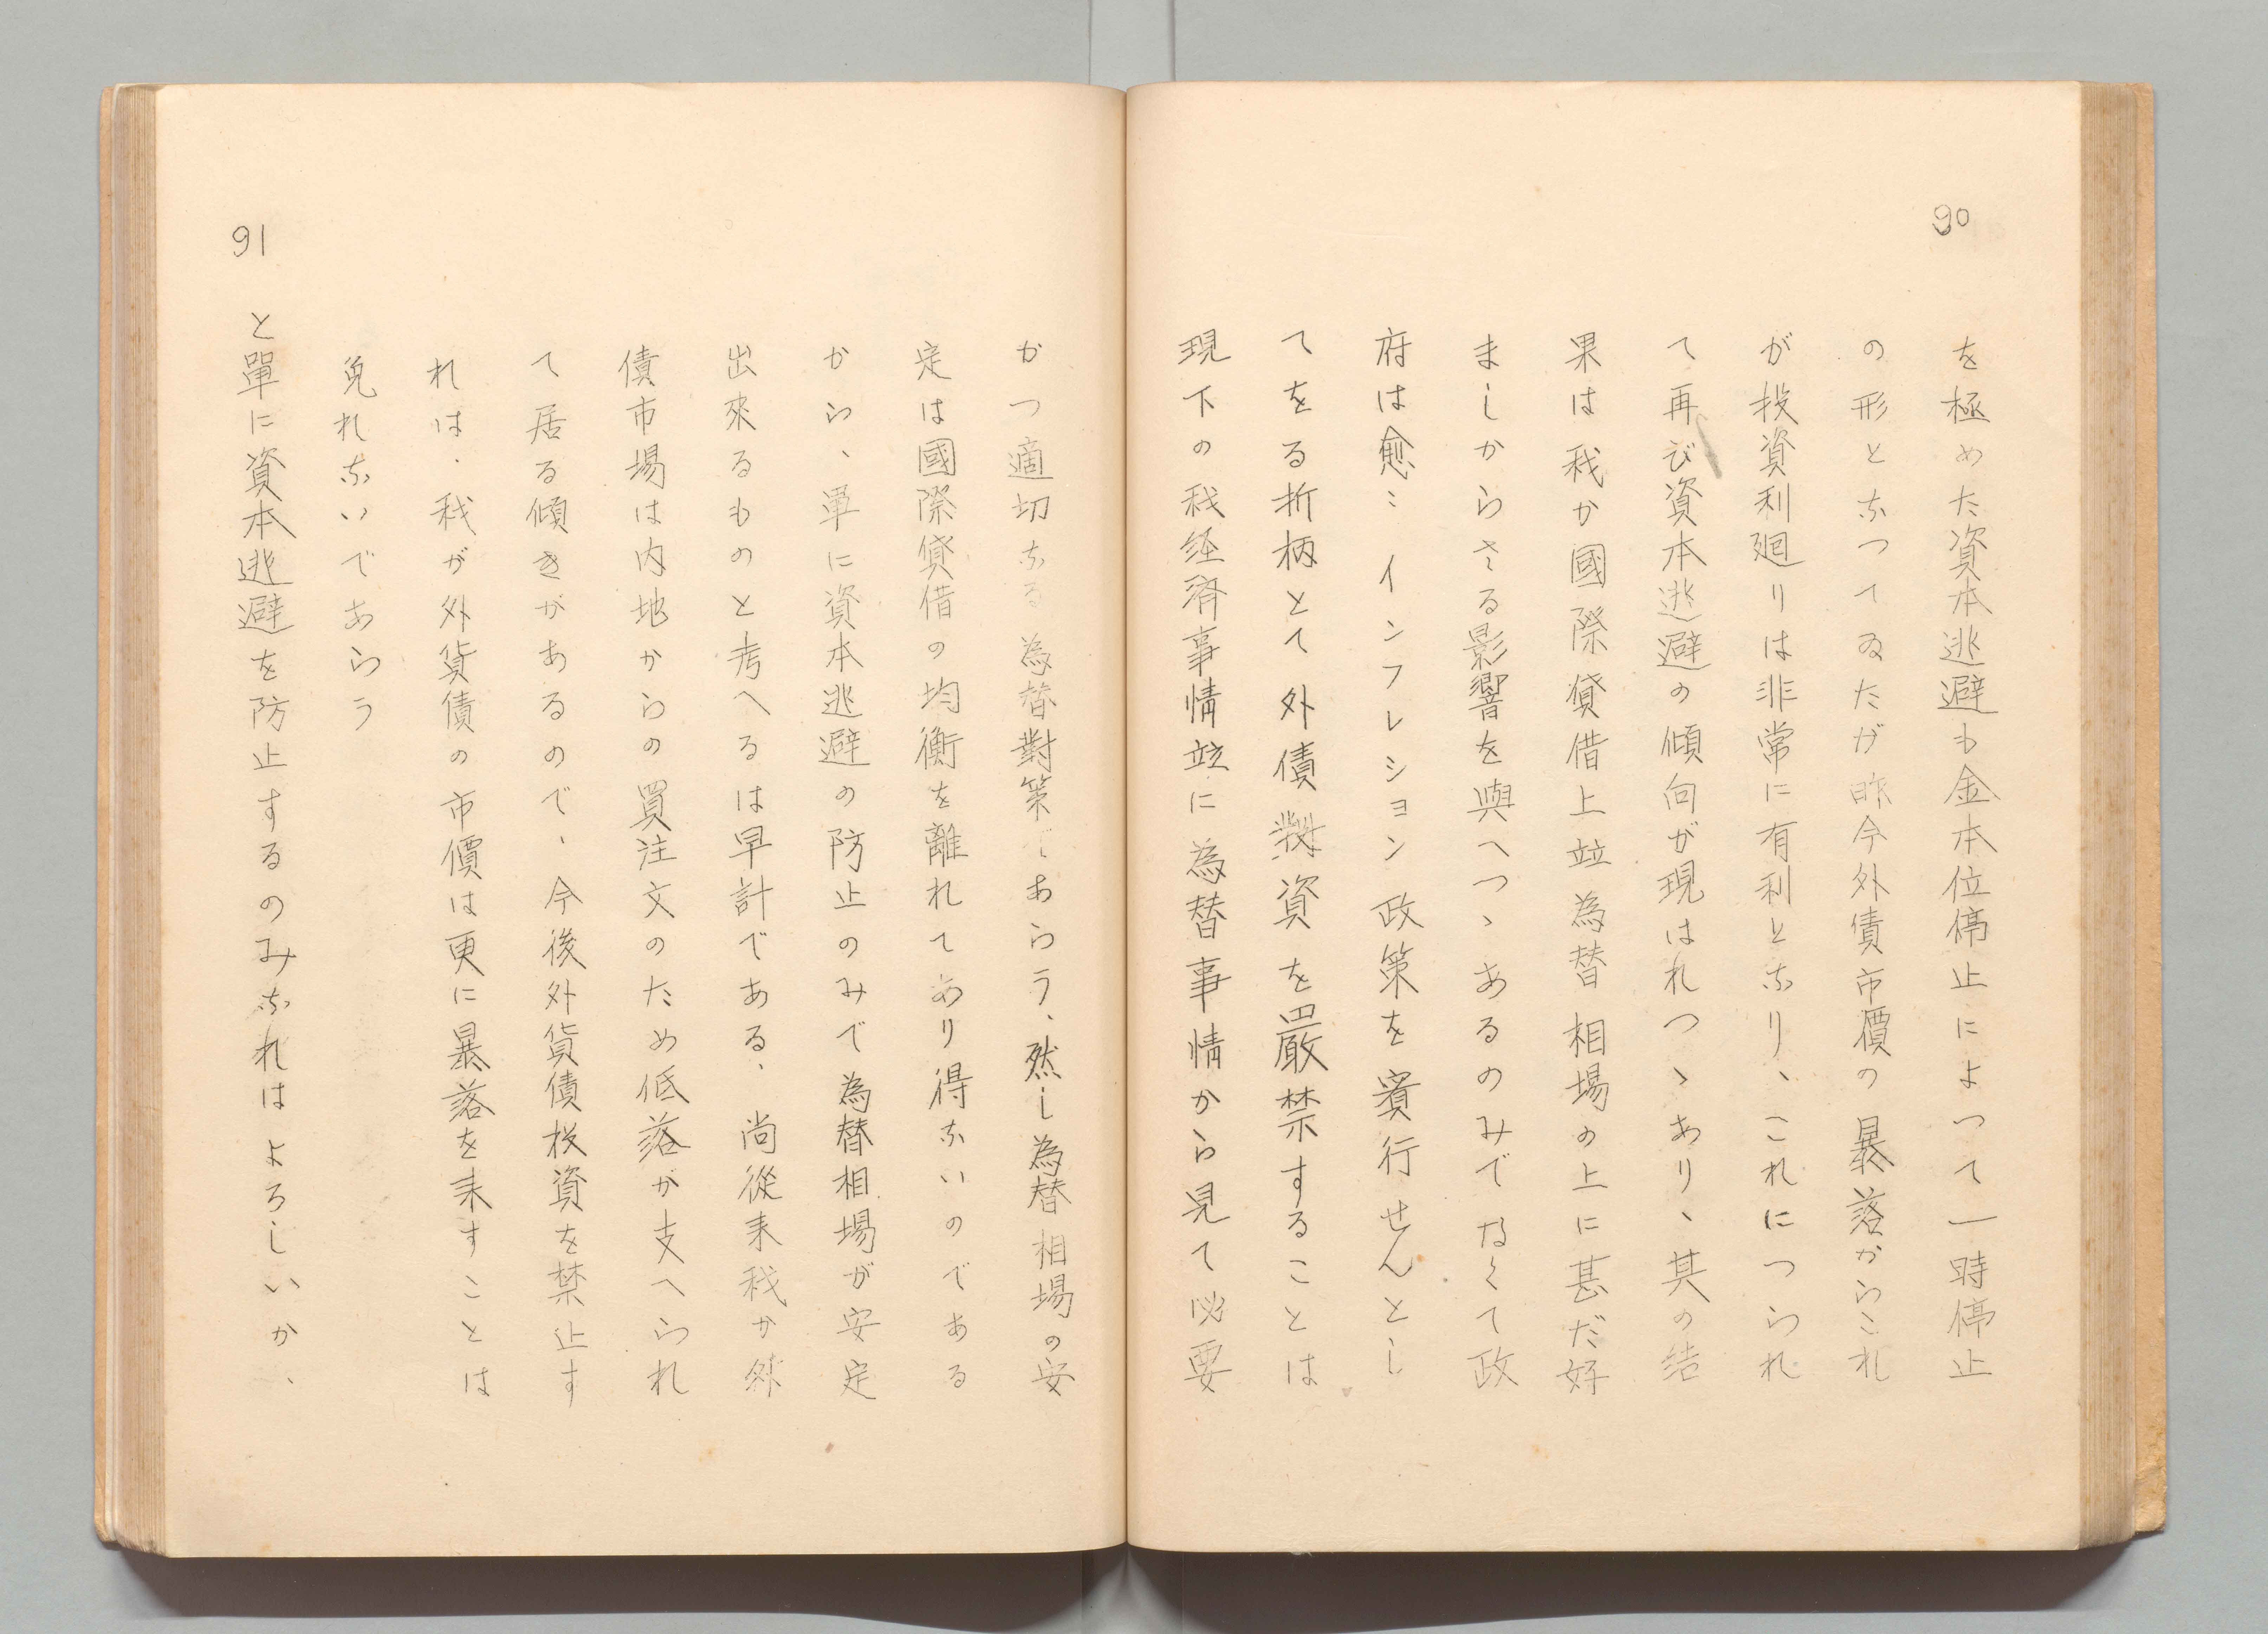 90
を極めた資本逃避も金本位停止によつて一時停止
の形となつてゐたが昨今外債市價の暴落からこれ
が投資利廻りは非常に有利となり、これにつられ
て再び資本逃避の傾向が現はれつゝあり、其の結
果は我か國際貸借上竝為替相場の上に甚だ好
ましからさる影響を與へつゝあるのみでなくて政
府は愈〻インフレション政策を實行せんとし
てをる折柄とて外債投資を嚴禁することは
現下の我経済事情竝に為替事情から見て必要
かつ適切なる為替對策であらう、然し為替相場の安
定は國際貸借の均衡を離れてあり得ないのである
から、單に資本逃避の防止のみで為替相場が安定
出來るものと考へるは早計である、尚從来我か外
債市場は内地からの買注文のため低落が支へられ
て居る傾きがあるので、今後外貨債投資を禁止す
れは、我が外貨債の市價は更に暴落を来すことは
免れないであらう
91
と單に資本逃避を防止するのみなれはよろしいか、